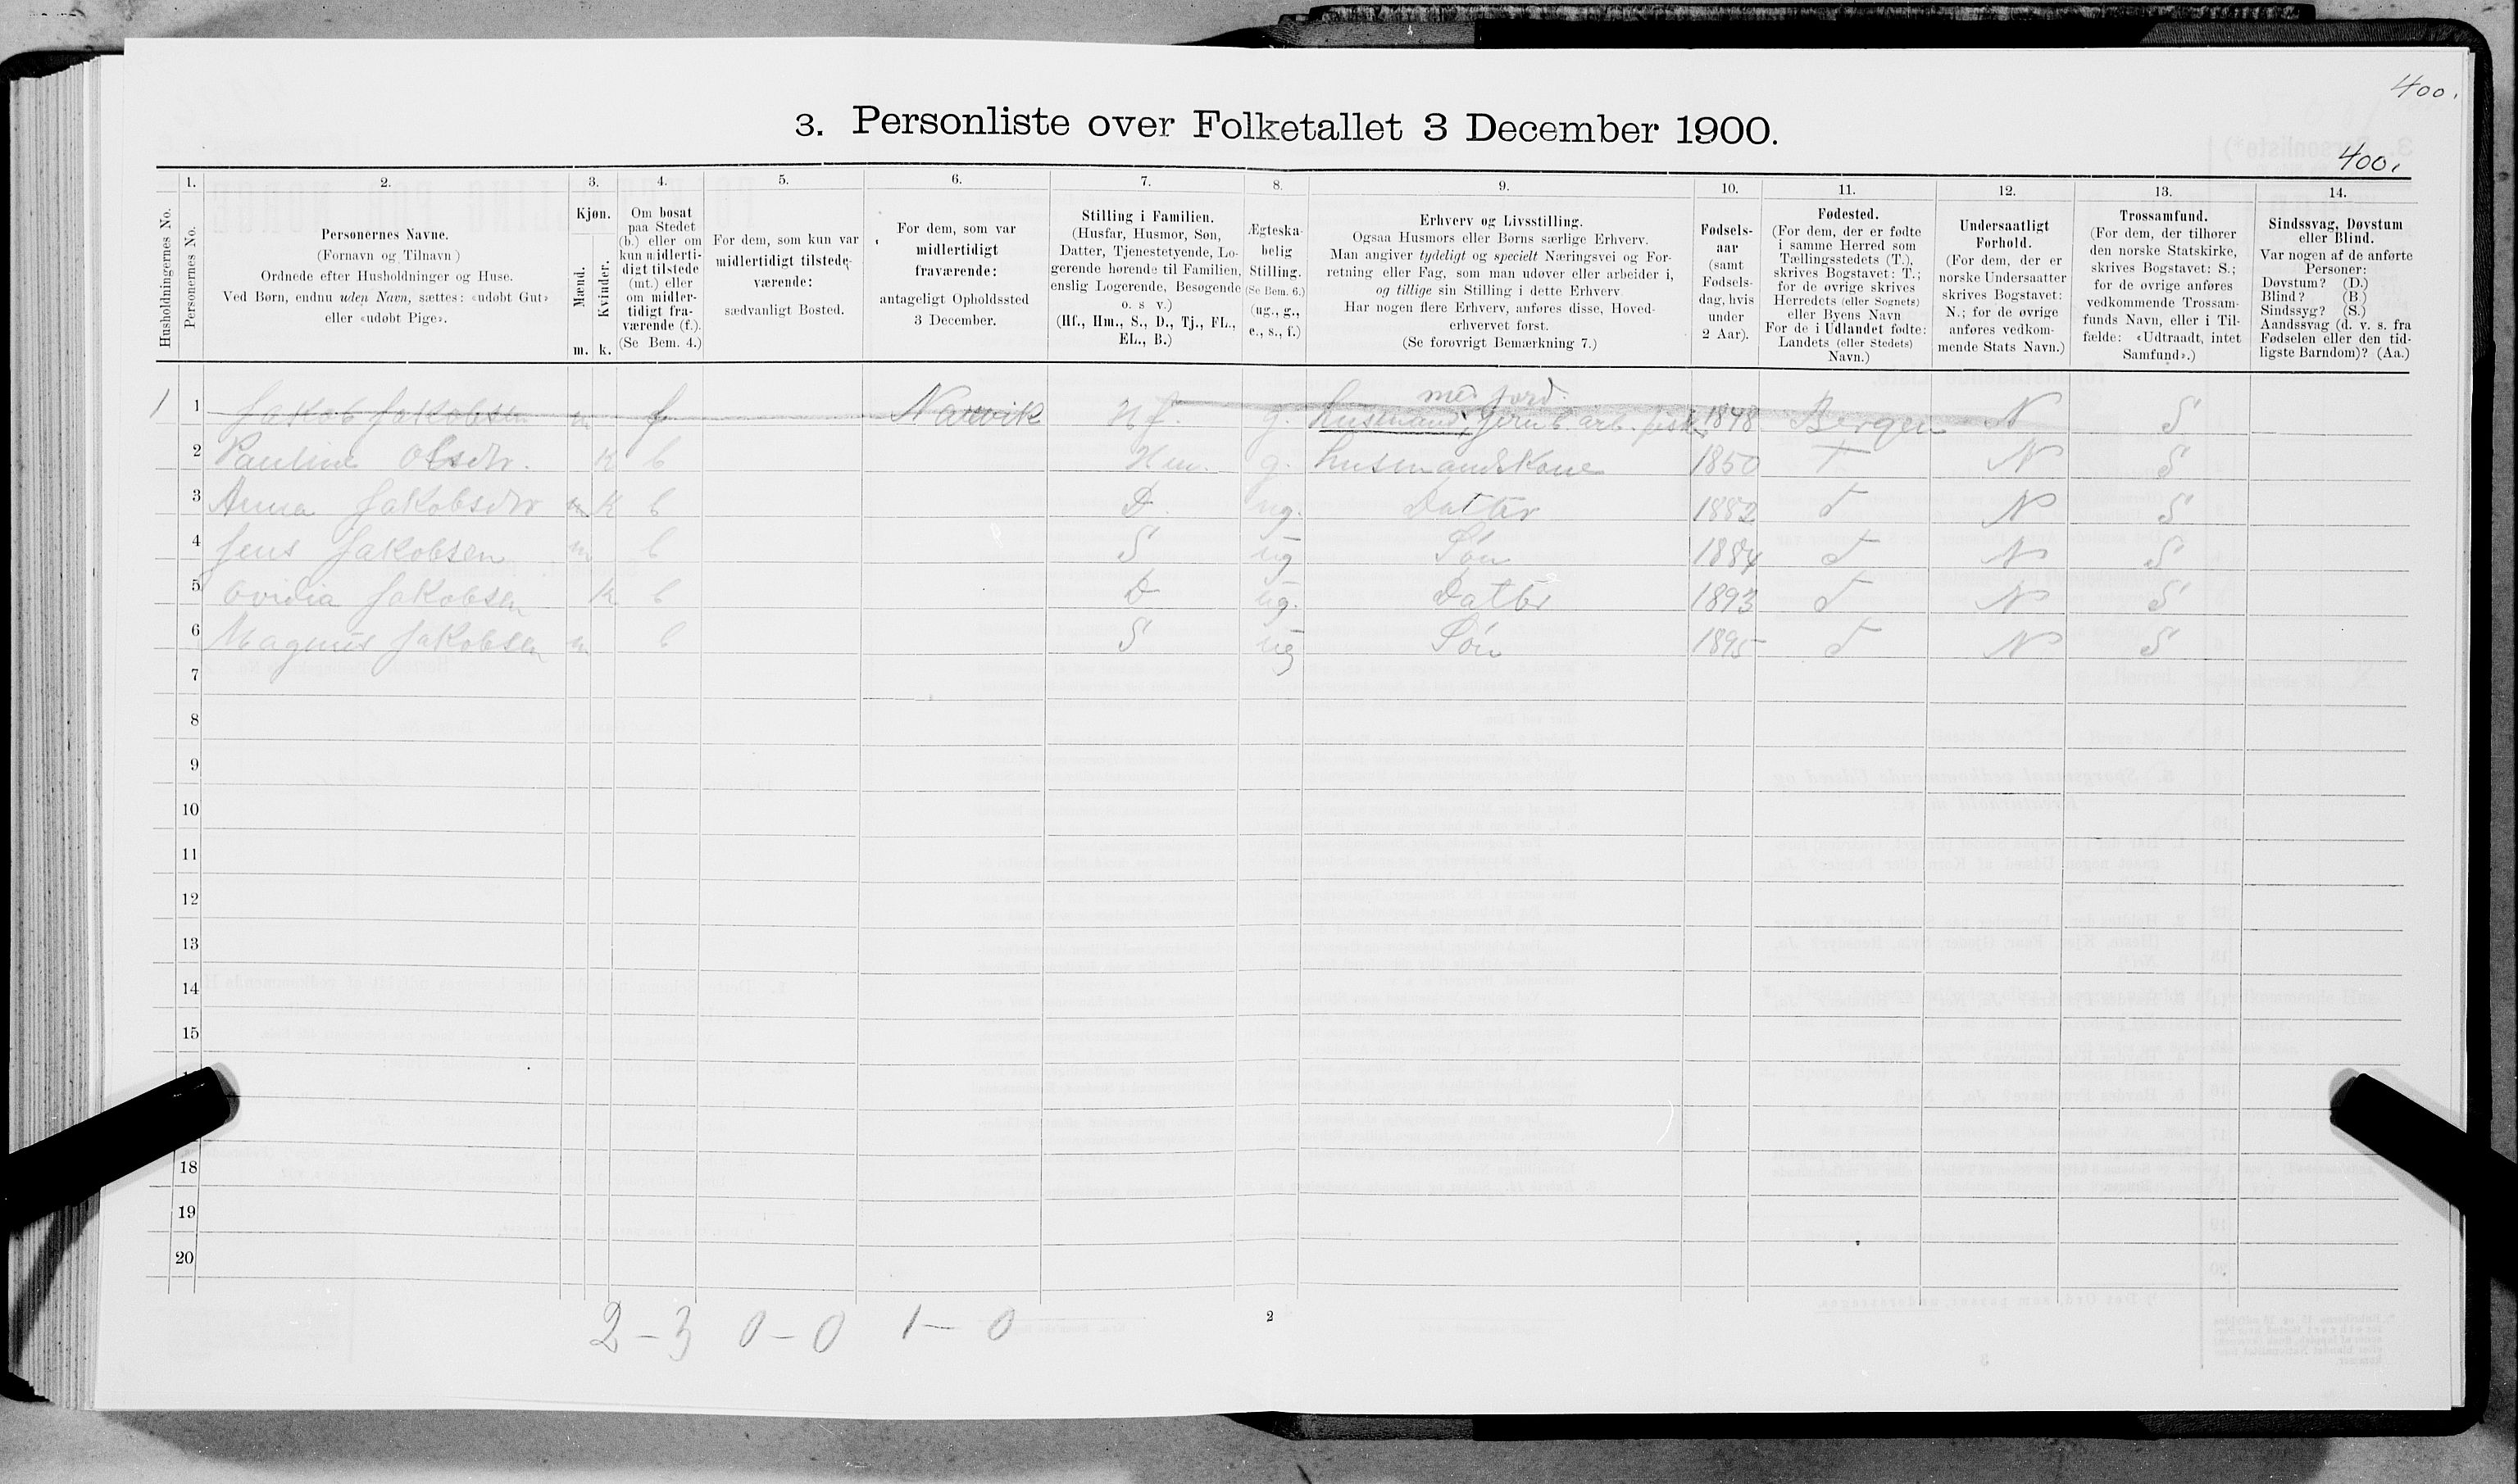 400.
3. Personliste over Folketallet 3 December 1900.
400.
1. 2. 3. 4. 5. 6. 7. 8. 9. 10. 11. 12. 13. 14.
Husholdningernes No.
Personernes No.
Personernes Navne.
(Fornavn og Tilnavn)
Ordnede efter Husholdninger og Huse.
Ved Børn, endnu uden Navn, sættes: «udøbt Gut»
eller «udøbt Pige».
Kjøn.
Mænd.
Kvinder.
m. k.
Om bosat
paa Stedet
(b.) eller om
kun midlerti-
digt tilstede
(mt.) eller
om midler-
tidigt fra-
værende (f.).
(Se Bem. 4.)
For dem, som kun var
midlertidigt tilstede-
værende:
sædvanligt Bosted.
For dem, som var
midlertidigt
fraværende:
antageligt Opholdssted
3 December.
Stilling i Familien.
(Husfar, Husmor, Søn,
Datter, Tjenestetyende, Lo-
gerende hørende til Familien,
enslig Logerende, Besøgende
o. s v.)
(Hf., Hm., S., D., Tj., FL.,
EL., B.)
Ægteska-
belig
Stilling.
(Se Bem. 6.)
(ug., g.,
e., s., f.)
Erhverv og Livsstilling.
Ogsaa Husmors eller Børns særlige Erhverv.
Man angiver tydeligt og specielt Næringsvei og For-
retning eller Fag, som man udøver eller arbeider i,
og tillige sin Stilling i dette Erhverv
Har nogen flere Erhverv, anføres disse, Hoved-
erhvervet først.
(Se forøvrigt Bemærkning 7.)
Fødsels-
aar
(samt
Fødsels-
dag, hvis
under
2 Aar).
Fødested.
(For dem, der er fødte
i samme Herred som
Tællingsstedets (T.),
skrives Bogstavet: T.;
for de øvrige skrives
Herredets (eller Sognets)
eller Byens Navn
For de i Udlandet fødte:
Landets (eller Stedets)
Navn.)
Undersaatligt
Forhold.
(For dem, der er
norske Undersaatter
skrives Bogstavet:
N.; for de øvrige
anføres vedkom-
mende Stats Navn.)
Trossamfund.
(For dem, der tilhører
den norske Statskirke,
skrives Bogstavet: S.;
for de øvrige anføres
vedkommende Trossam-
funds Navn, eller i Til-
fælde: «Udtraadt, intet
Samfund».)
Sindssvag, Døvstum
eller Blind.
Var nogen af de anførte
Personer:
Døvstum? (D.)
Blind? (B.)
Sindssyg? (S.)
Aandssvag (d. v. s. fra
Fødselen eller den tid-
ligste Barndom)? (Aa.)
med jord.
1 1 Jakob Jakobsen m f Narvik Hf. g. husmand, jernb. arb. fisk 1848 Bergen N S
2 Pauline Olsdtr. K b Hm. g. husmandskone 1850 T N S
3 Anna Jakobsdtr K b D. ug. Datter 1882 T N S
4 Jens Jakobsen m b S ug Søn 1884 T N S
5 Ovidia Jakobsen K. b D ug. Datter 1893 T N S
6 Magnus Jakobsen m b S ug Søn 1895 T N S
7
8
9
10
11
12
13
14
15
18
19
20
2 - 3 0 - 0 1 - 0
2